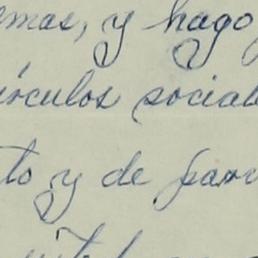 emas, y hago
írculos social
to y de par